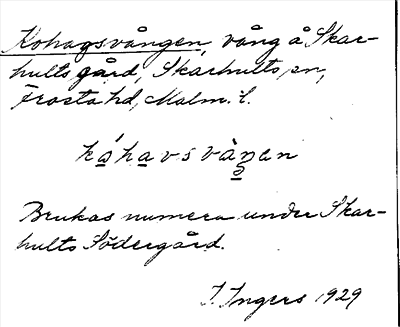 Kohagsvången, vång å Skar-
hults gård, Skarhults sn,
Frosta hd, Malm. l.
ká̱ha̱vsvàŋ̱ən
Brukas numera under Skar-
hults Södergård.
I. Ingers 1929